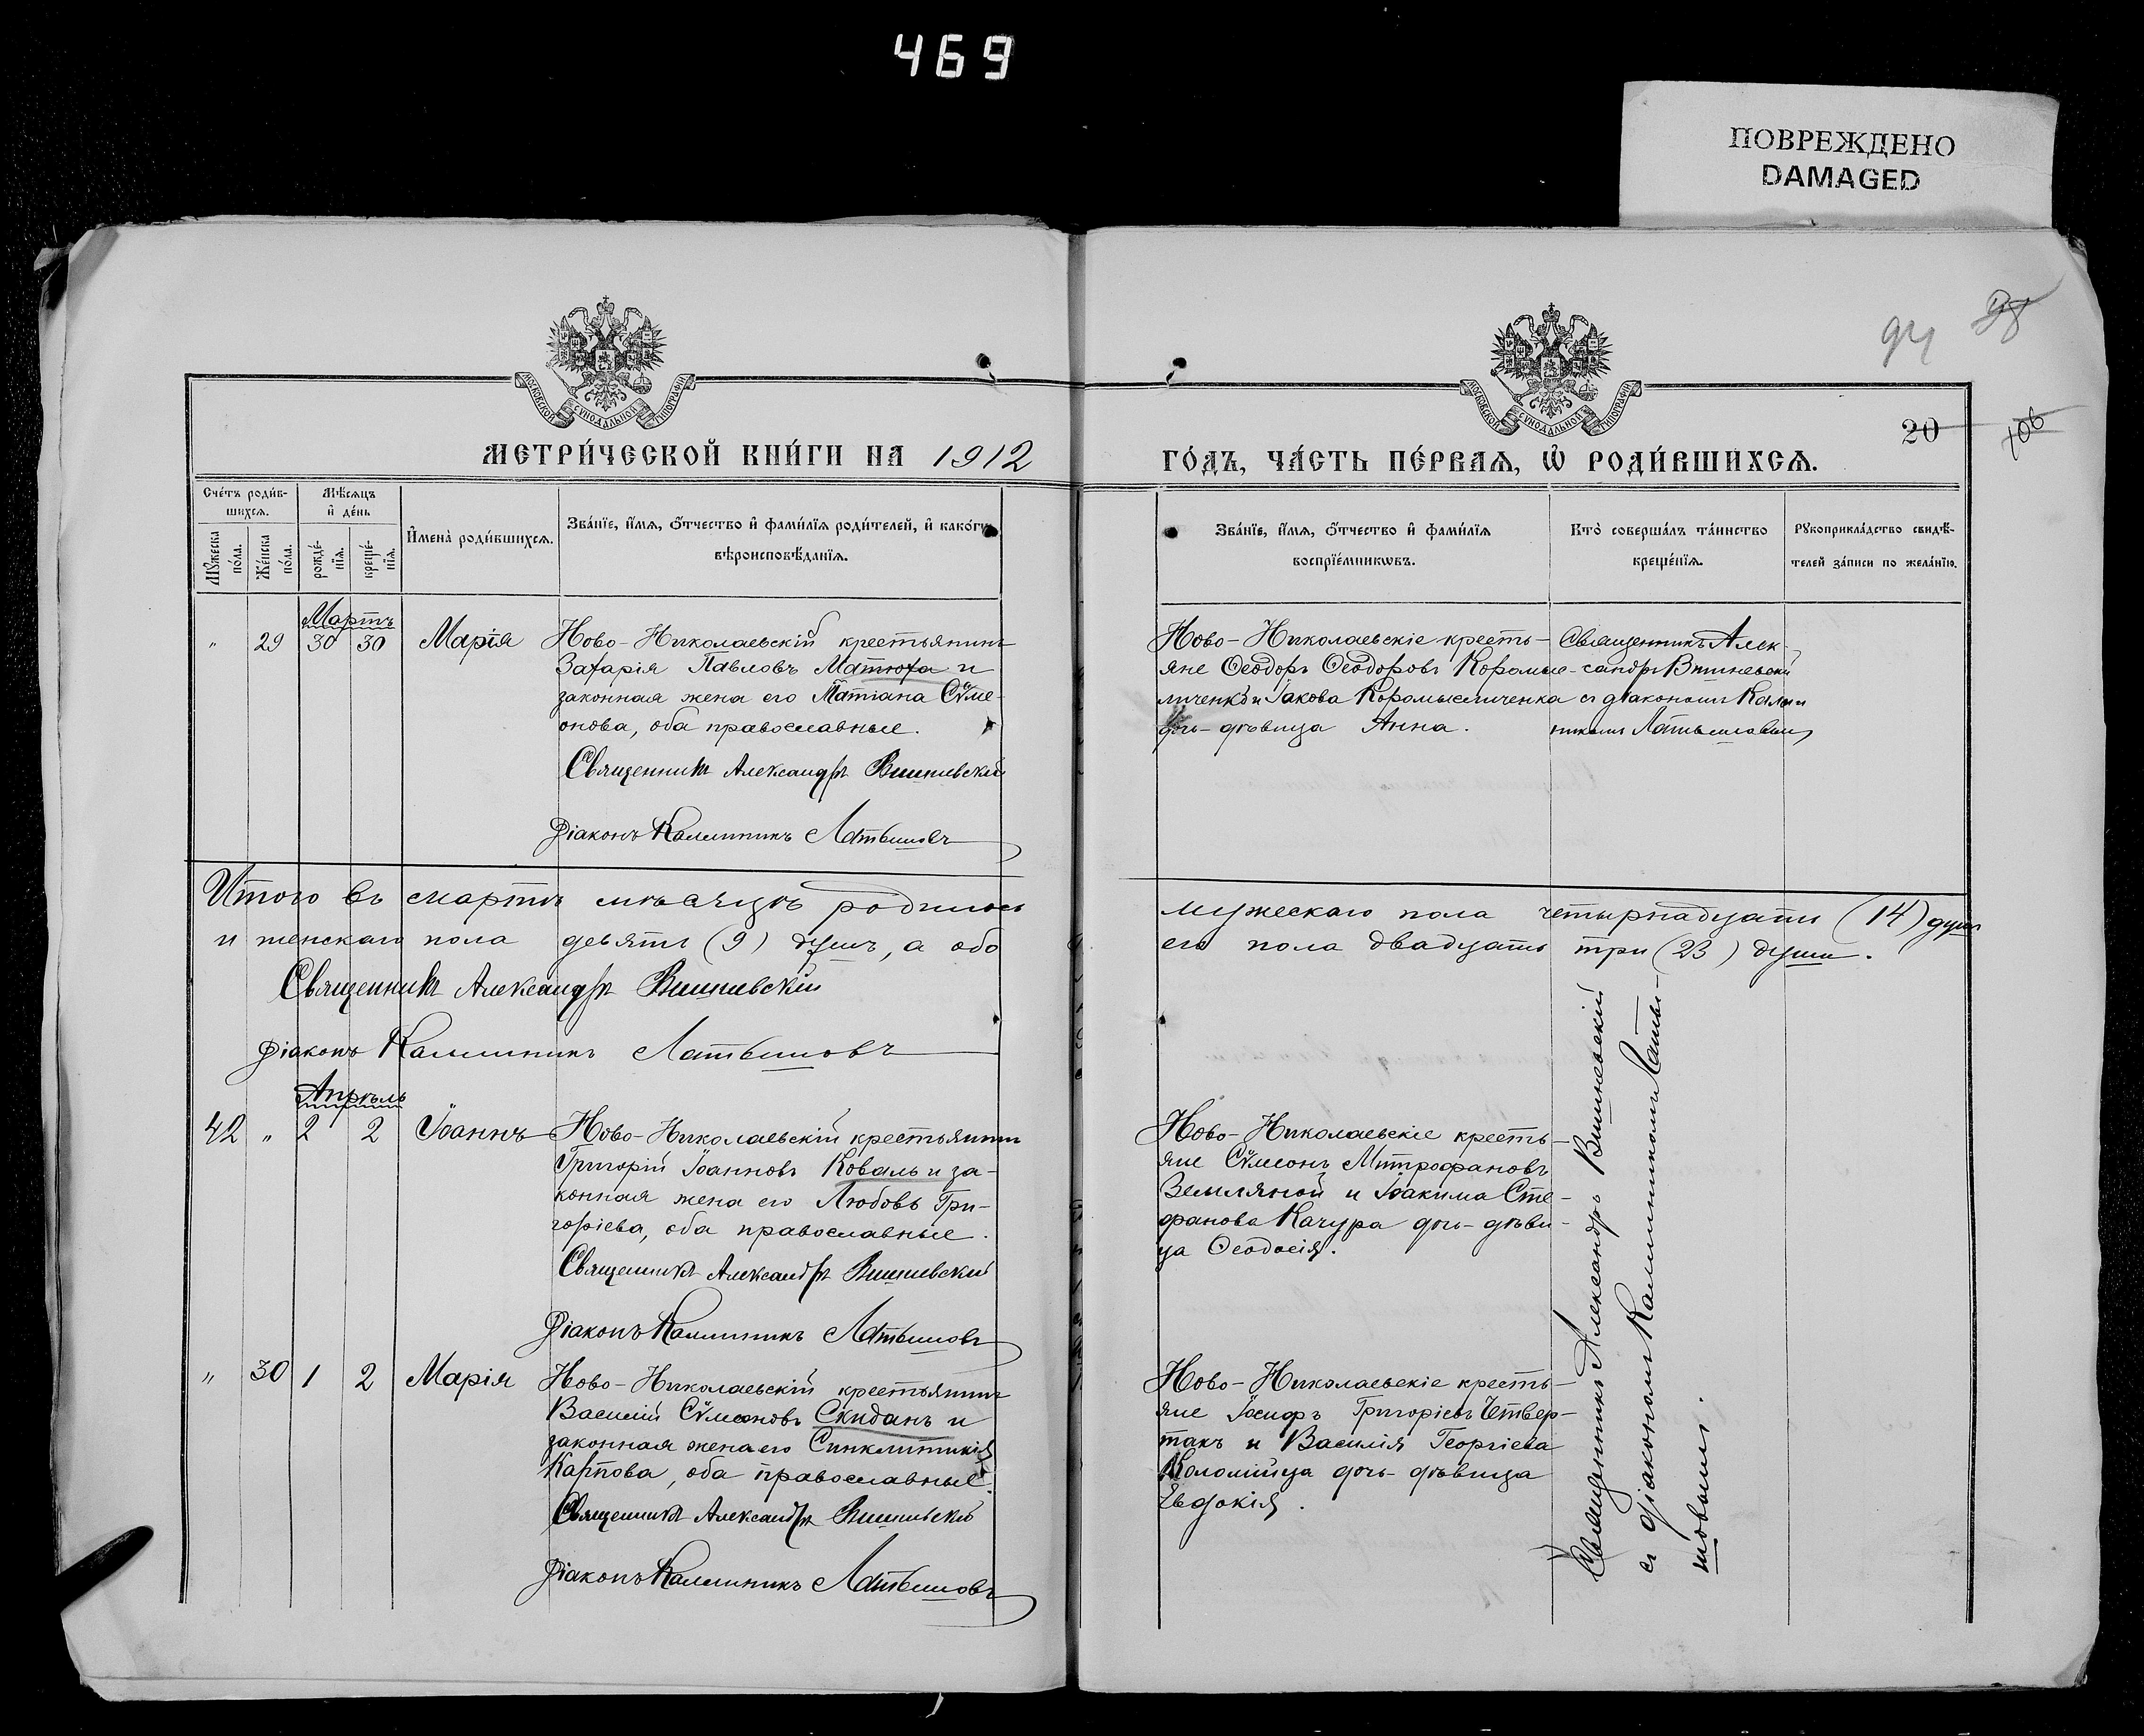 469
ПОВРЕЖДЕНО
DAMAGED
94
20
106
МОСКОВСКОЙ СѴНОДАЛЬНОЙ ТИПОГРАФІИ
МОСКОВСКОЙ СѴНОДАЛЬНОЙ ТИПОГРАФІИ
МЕТРИ́ЧЕСКОЙ КНИ́ГИ НА 1912
ГО́ДЪ, ЧА́СТЬ ПЕ́РВАѦ, Ѡ РОДИ́ВШИХСѦ.
Сче́тъ роди́в-
шихсѧ.
Мꙋжеска
по́ла.
Же́нска
по́ла.
Мѣ́сѧцъ
и҆ де́нь
рожде́-
нїѧ.
креще́-
нїѧ.
И҆мена̀ роди́вшихсѧ.
Зва́нїе, и҆́мѧ, ѻ҆́тчество и҆ фами́лїѧ роди́телей, и҆ како́гѡ
вѣроисповѣ́данїѧ.
Зва́нїе, и҆́мѧ, ѻ҆́тчество и҆ фами́лїѧ
воспрїе́мникѡвъ.
Кто̀ соверша́лъ та́инство
креще́нїѧ.
Рꙋкоприкла́дство свидѣ́-
телей за́писи по жела́нїю.
Мартъ
" 29 30 30 Марія
Ново-Николаевскій крестьянинъ
Захарія Павловъ Матюха и
законная жена его Татіана Сѵме-
онова, оба православные.
Священникъ Александръ Вишневскій
Діаконъ Каллиникъ Латышовъ
Ново-Николаевскіе кресть-
яне Ѳеодоръ Ѳеодоровъ Коромыс-
личенко и Іакова Коромысличенка
дочь-дѣвица Анна.
Священникъ Алек-
сандръ Вишневскій
съ діакономъ Калли
никомъ Латышовымъ
Итого въ мартѣ мѣсяцѣ родилось мужескаго пола четырнадцать (14) душъ
и женскаго пола девять (9) душъ, а обо его пола двадцать три (23) души.
Священникъ Александръ Вишневскій
Діаконъ Каллиникъ Латышовъ
Апрѣль
42 " 2 2 Іоаннъ
Ново-Николаевскій крестьянинъ
Григорій Іоанновъ Коваль и за-
конная жена его Любовь Гри-
горіева, оба православные.
Священникъ Александръ Вишневскій
Діаконъ Каллиникъ Латышовъ
Ново-Николаевскіе кресть-
яне Сѵмеонъ Митрофановъ
Земляной и Іоакима Сте-
фанова Качура дочь-дѣви-
ца Ѳеодосія.
" 30 1 2 Марія
Ново-Николаевскій крестьянинъ
Василій Сѵмеоновъ Скиданъ и
законная жена его Синклитикія
Карпова, оба православные.
Священникъ Александръ Вишневскій
Діаконъ Каллиникъ Латышовъ
Ново-Николаевскіе кресть-
яне Іосифъ Григоріевъ Четвер-
такъ и Василія Георгіева
Коломійца дочь-дѣвица
Евдокія.
Священникъ Александръ Вишневскій
съ діакономъ Каллиникомъ Латы-
шовымъ.